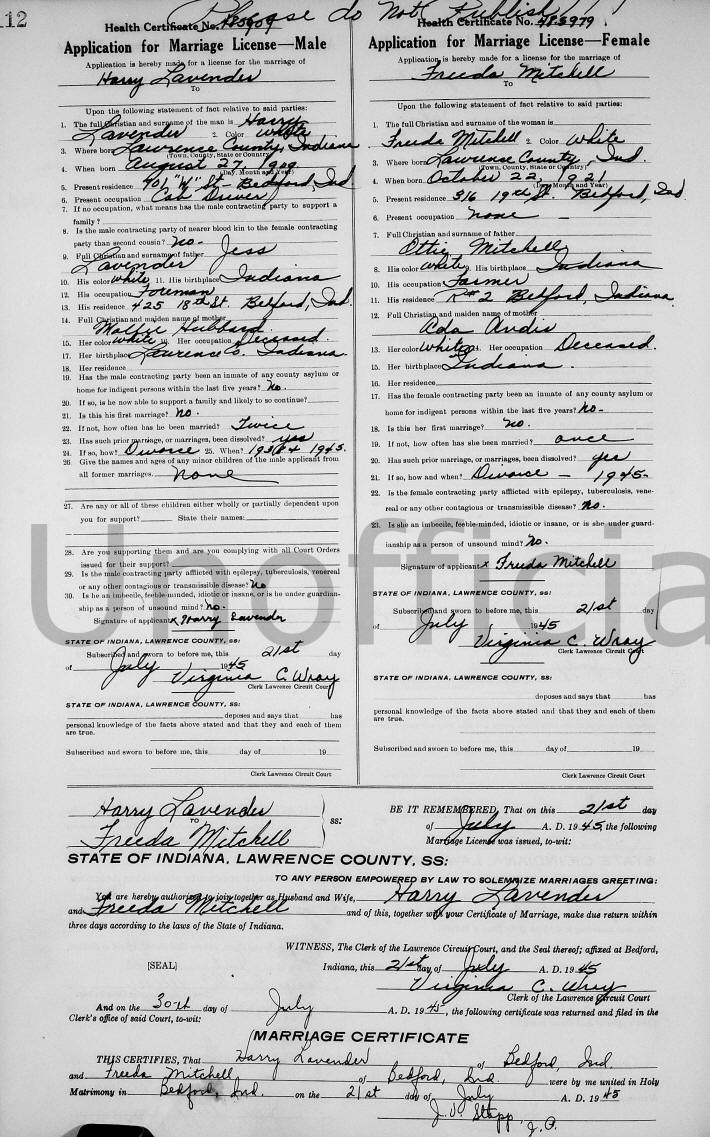 112
Please do Not Publish!!!
Health Certificate No.
Application for Marriage License—Male
Application is hereby made for a license for the marriage of
Harry Lavender
To
Upon the following statement of fact relative to said parties:
1. The full Christian and surname of the man is Harry
Lavender 2. Color White
3. Where born Lawrence County, Indiana
(Town, County, State or Country)
4. When born August 27, 1909
(Day, Month and Year)
5. Present residence "H" St - Bedford, Ind
6. Present occupation Cab Driver
7. If no occupation, what means has the male contracting party to support a
family?
8. Is the male contracting party of nearer blood kin to the female contracting
party than second cousin? No-
9. Full Christian and surname of father Jess
Lavender
10. His color white 11. His birthplace Indiana
12. His occupation Foreman
13. His residence 425 18th St. Bedford, Ind.
14. Full Christian and maiden name of mother
Mollie Hubbard.
15. Her color white 16. Her occupation Deceased.
17. Her birthplace Lawrence Co. Indiana.
18. Her residence
19. Has the male contracting party been an inmate of any county asylum or
home for indigent persons within the last five years? No.
20. If so, is he now able to support a family and likely to so continue?
21. Is this his first marriage? No.
22. If not, how often has he been married? Twice
23. Has such prior marriage, or marriages, been dissolved? yes
24. If so, how? Divorce 25. When? & 1945.
26. Give the names and ages of any minor children of the male applicant from
all former marriages. None
27. Are any or all of these children either wholly or partially dependent upon
you for support? State their names:
28. Are you supporting them and are you complying with all Court Orders
issued for their support?
29. Is the male contracting party afflicted with epilepsy, tuberculosis, venereal
or any other contagious or transmissible disease? No
30. Is he an imbecile, feeble-minded, idiotic or insane, or is he under guardian-
ship as a person of unsound mind? No.
Signature of applicant x Harry Lavender
STATE OF INDIANA, LAWRENCE COUNTY, ss:
Subscribed and sworn to before me, this 21st day
of July 1945
Virginia C. Wray
Clerk Lawrence Circuit Court
STATE OF INDIANA, LAWRENCE COUNTY, SS:
deposes and says that has
personal knowledge of the facts above stated and that they and each of them
are true.
Subscribed and sworn to before me, this day of 19
Clerk Lawrence Circuit Court
Health Certificate No. 485979
Application for Marriage License—Female
Application is hereby made for a license for the marriage of
Freeda Mitchell
To
Upon the following statement of fact relative to said parties:
1. The full Christian and surname of the woman is
Freeda Mitchell 2. Color White
3. Where born Lawrence County, Ind.
(Town, County, State or Country)
4. When born October 22, 1921
(Day, Month and Year)
5. Present residence 316 19th St. Bedford, Ind.
6. Present occupation none -
7. Full Christian and surname of father
Ottie Mitchell
8. His color white 9. His birthplace Indiana
10. His occupation Farmer
11. His residence R#2 Bedford, Indiana
12. Full Christian and maiden name of mother
Ada Andis
13. Her color White 14. Her occupation Deceased.
15. Her birthplace Indiana.
16. Her residence
17. Has the female contracting party been an inmate of any county asylum or
home for indigent persons within the last five years? No-
18. Is this her first marriage? No.
19. If not, how often has she been married? once
20. Has such prior marriage, or marriages, been dissolved? yes
21. If so, how and when? Divorce - 1945-
22. Is the female contracting party afflicted with epilepsy, tuberculosis, vene-
real or any other contagious or transmissible disease? No.
23. Is she an imbecile, feeble-minded, idiotic or insane, or is she under guard-
ianship as a person of unsound mind? No.
Signature of applicant x Freeda Mitchell
STATE OF INDIANA, LAWRENCE COUNTY, ss:
Subscribed and sworn to before me, this 21st day
of July 1945
Virginia C. Wray
Clerk Lawrence Circuit Court
STATE OF INDIANA, LAWRENCE COUNTY, SS:
deposes and says that has
personal knowledge of the facts above stated and that they and each of them
are true.
Subscribed and sworn to before me, this day of 19
Clerk Lawrence Circuit Court
Unofficia
Harry Lavender
TO
Freeda Mitchell
ss:
BE IT REMEMBERED, That on this 21st day
of July A. D. 1945, the following
Marriage License was issued, to-wit:
STATE OF INDIANA, LAWRENCE COUNTY, SS:
TO ANY PERSON EMPOWERED BY LAW TO SOLEMNIZE MARRIAGES GREETING:
You are hereby authorized to join together as Husband and Wife, Harry Lavender
and Freeda Mitchell and of this, together with your Certificate of Marriage, make due return within
three days according to the laws of the State of Indiana.
WITNESS, The Clerk of the Lawrence Circuit Court, and the Seal thereof; affixed at Bedford,
[SEAL] Indiana, this 21st day of July A. D. 1945
Virginia C. Wray
Clerk of the Lawrence Circuit Court
And on the 30th day of July A. D. 1945, the following certificate was returned and filed in the
Clerk's office of said Court, to-wit:
MARRIAGE CERTIFICATE
THIS CERTIFIES, That Harry Lavender of Bedford, Ind.
and Freeda Mitchell of Bedford, Ind. were by me united in Holy
Matrimony in Bedford, Ind. on the 21st day of July A. D. 1945
J. V. Stapp, J.P.